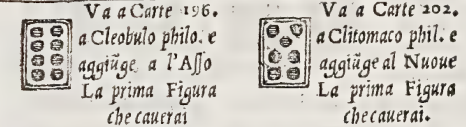 Va a Carte 196.
a Cleobulo philo. e
aggiũge, a l'Aſſo
La prima Figura
che cauerai
Va a Carte 202.
a Clitomaco phil. e
aggiũge al Nuoue
La prima Figura
che cauerai.